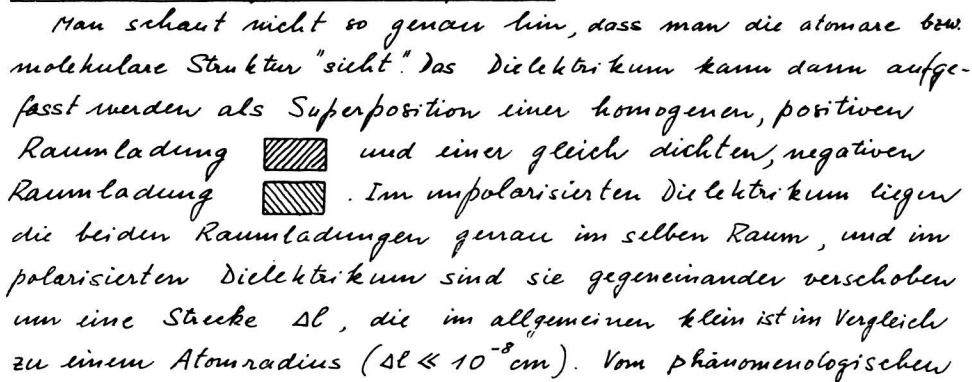 Man schaut nicht so genau hin, dass man die atomare bzw.
molekulare Struktur "sieht". Das Dielektrikum kann dann aufge-
fasst werden als Superposition einer homogenen, positiven
Raumladung und einer gleich dichten, negativen
Raumladung . Im unpolarisierten Dielektrikum liegen
die beiden Raumladungen genau im selben Raum, und im
polarisierten Dielektrikum sind sie gegeneinander verschoben
um eine Strecke Δl, die im allgemeinen klein ist im Vergleich
zu einem Atomradius (Δl ≪ 10⁻⁸ cm). Vom phänomenologischen